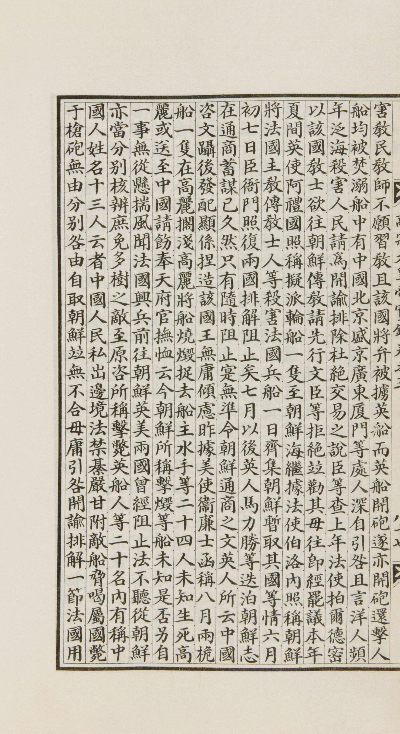 害教民教師不願習教且該國將弁被據英船而英船開砲遂亦開砲還擊人
船均被焚溺船中有中國北京盛京廣東厦門等處人深自引咎且言洋人頻
年泛海殺害人民請為開諭排除杜絕交易之說臣等查上年法使拍爾德密
以該國敎士欲往朝鮮傳敎請先行文臣等拒絕竝勸其毋往即經罷議本年
夏間英使阿禮國照稱擬派輪船一隻至朝鮮海繼據法使伯洛內照稱朝鮮
將法國主敎傳敎士人等殺害法國兵船一日齊集朝鮮暫取其國等情六月
初七日臣衙門照復兩國排解阻止矣七月以後英人馬力勝等迭泊朝鮮志
在通商蓄謀已久然只有隨時阻止寔無準令朝鮮通商之文英人所云中國
咨文躡後發配顯係捏造該國王無庸傾慮昨據美使衞廉士函稱八月兩桅
船一隻在高麗擱淺高麗將船燒燬捉去船主水手等二十四人未知生死高
麗或送至中國請飭奉天府官撫恤云今朝鮮所稱擊燬等船未知是否另自
一事無從懸揣風聞法國興兵前往朝鮮英美兩國曾經阻止法不聽從朝鮮
亦當分別核辨庶免多樹之敵至原咨所稱擊斃英船人等二十名內有稱中
國人姓名十三人云者中國人民私出邊境法禁綦嚴甘附敵船脅喝屬國斃
于槍砲無由分別咎由自取朝鮮竝無不合毋庸引咎開諭排解一節法國用